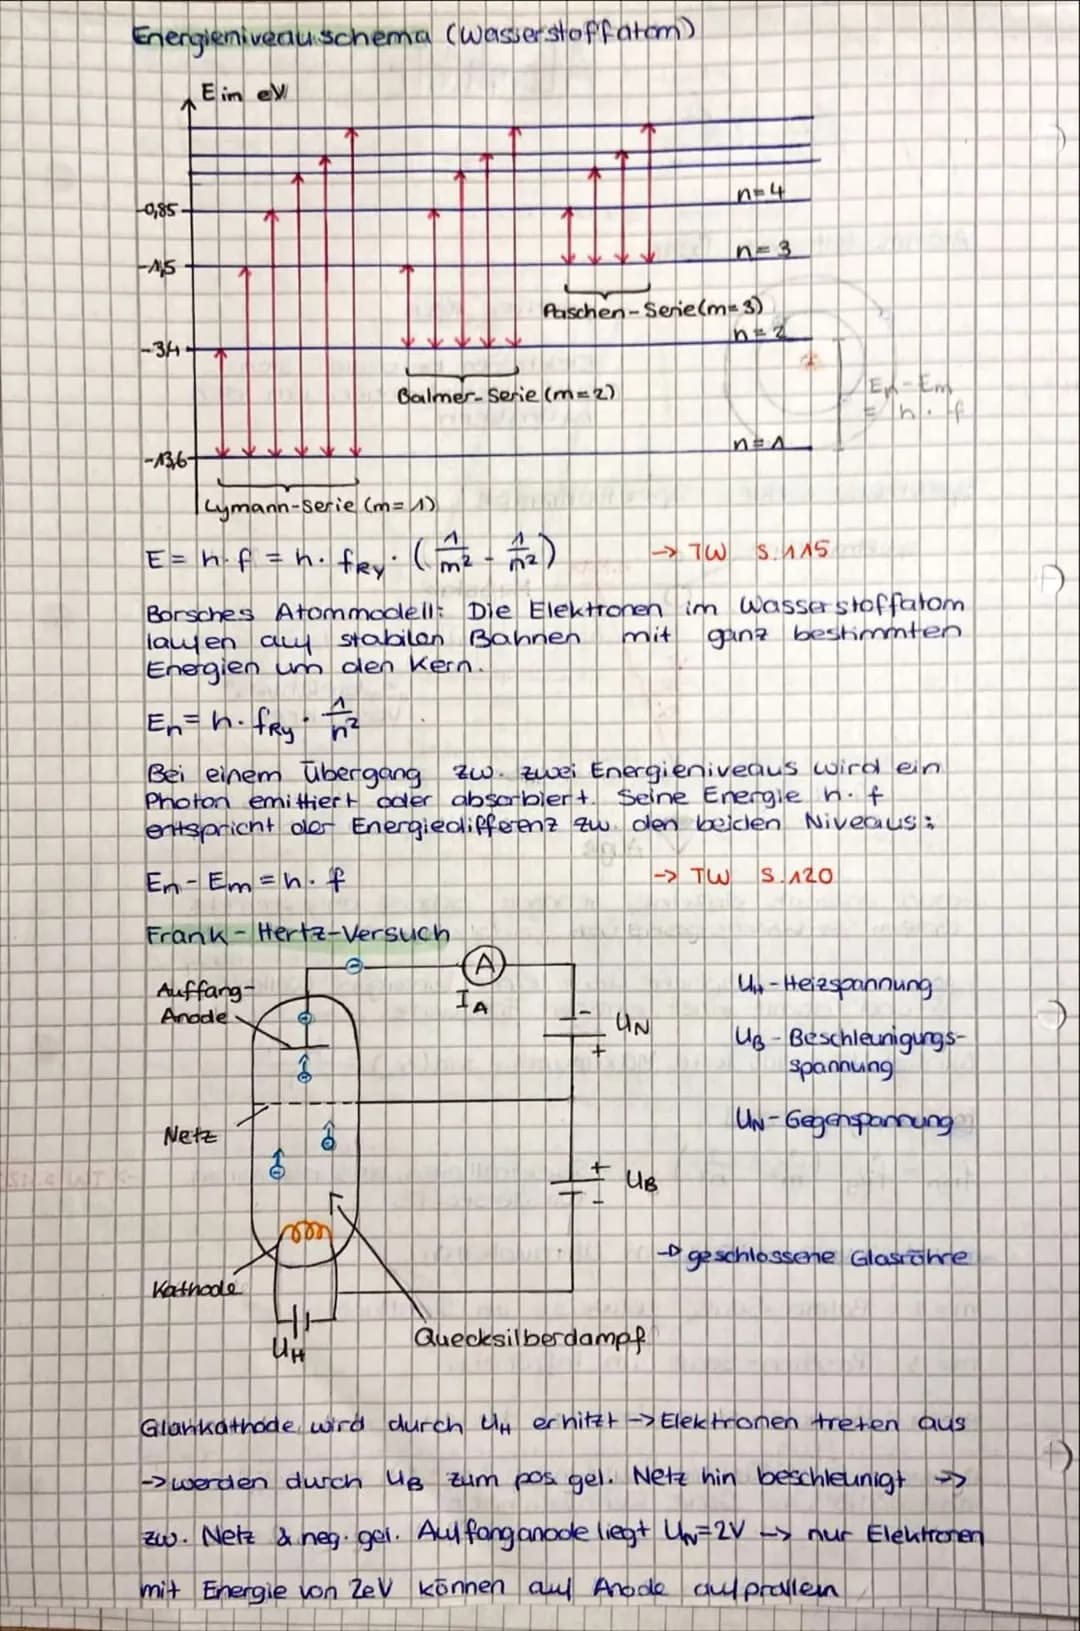 Energieniveauschema (Wasserstoffatom)
E in eV
n=4
-0,85
n=3
-1,5
Paschen-Serie (m=3)
n=2
-3,4
Balmer-Serie (m=2)
En-Em
= h · f
n=1
-13,6
Lymann-Serie (m=1)
E = h·f = h · fRy · (1/m² - 1/n²) → TW S.115
Borsches Atommodell: Die Elektronen im Wasserstoffatom
laufen auf stabilen Bahnen mit ganz bestimmten
Energien um den Kern.
En = h · fRy · 1/n²
Bei einem Übergang zw. zwei Energieniveaus wird ein
Photon emittiert oder absorbiert. Seine Energie h · f
entspricht der Energiedifferenz zw. den beiden Niveaus:
En - Em = h · f → TW S.120
Frank-Hertz-Versuch
Auffang-
Anode
A
IA
- UN
+
UH - Heizspannung
UB - Beschleunigungs-
spannung
UN - Gegenspannung
Netz
+ UB
-
→ geschlossene Glasröhre
Kathode
UH
Quecksilberdampf
Glühkathode wird durch UH erhitzt → Elektronen treten aus
→ werden durch UB zum pos. gel. Netz hin beschleunigt →
zw. Netz & neg. gel. Auffanganode liegt UN=2V → nur Elektronen
mit Energie von 2eV können auf Anode aufprallen